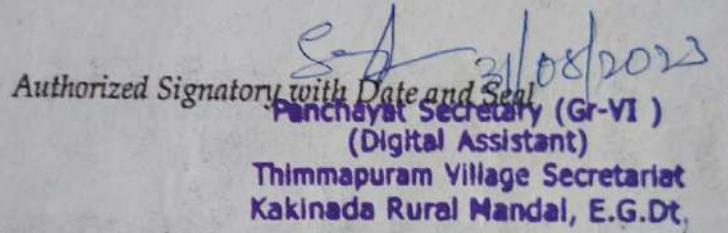 31/08/2023
Authorized Signatory with Date and Seal
Panchayat Secretary (Gr-VI )
(Digital Assistant)
Thimmapuram Village Secretariat
Kakinada Rural Mandal, E.G.Dt,